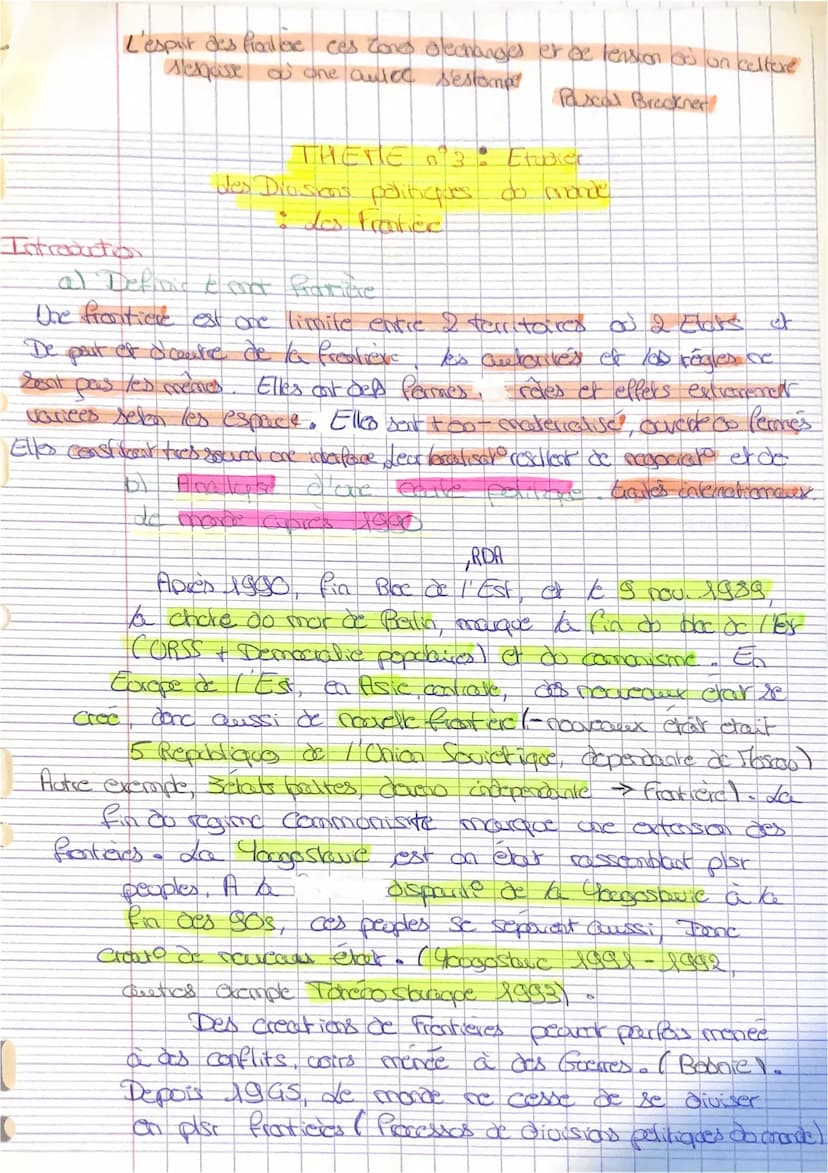 L'esprit des frontière ces zones d'echanges et de tension où un culture
s'esquise où une autre s'estompe
Pascal Bruckner
THEME n°3 : Etudier
des Divisions politiques du monde
: les Frontière
Introduction
a) Definir le mot frontière
Une frontiere est une limite entre 2 territoires où 2 Etats et
De part et d'autre de la frontière, les autorités et les règles ne
sont pas les mêmes. Elles ont des formes, rôles et effets extrêmement
variées selon les espace. Elles sont + ou - materialisé, ouverte ou fermés
Elles constituent très souvent une interface, leur localisat° resultent de negociat° et de
b) Analyse d'une carte politique. traités internationaux.
du monde après 1990
, RDA
Après 1990, fin Bloc de l'Est, et le 9 nov. 1989,
la chute du mur de Berlin, marque la fin du bloc de l'Est
(URSS + Democratie populaires) et du communisme. En
Europe de l'Est, en Asie centrale, des nouveaux état se
créé, donc aussi de nouvelle frontière (- nouveaux état était
5 Republique de l'Union Sovietique, dependante de Moscou)
Autre exemple, 3états baltes, devenu independante → frontière). La
fin du regime communiste marque une extension des
frontières. La Yougoslavie est un état rassemblant plsr
peuples. A la disparité de la Yougoslavie à la
fin des 90s, ces peuples se separent aussi, Donc
creat° de nouveaux état. (Yougoslavie 1991 - 1992,
autres exemple 1993).
Des creations de frontières peuvent parfois menée
à des conflits, voirs menée à des Guerres. (Bosnie).
Depuis 1945, le monde ne cesse de se diviser
en plsr frontières (Processus de divisions politiques du monde)